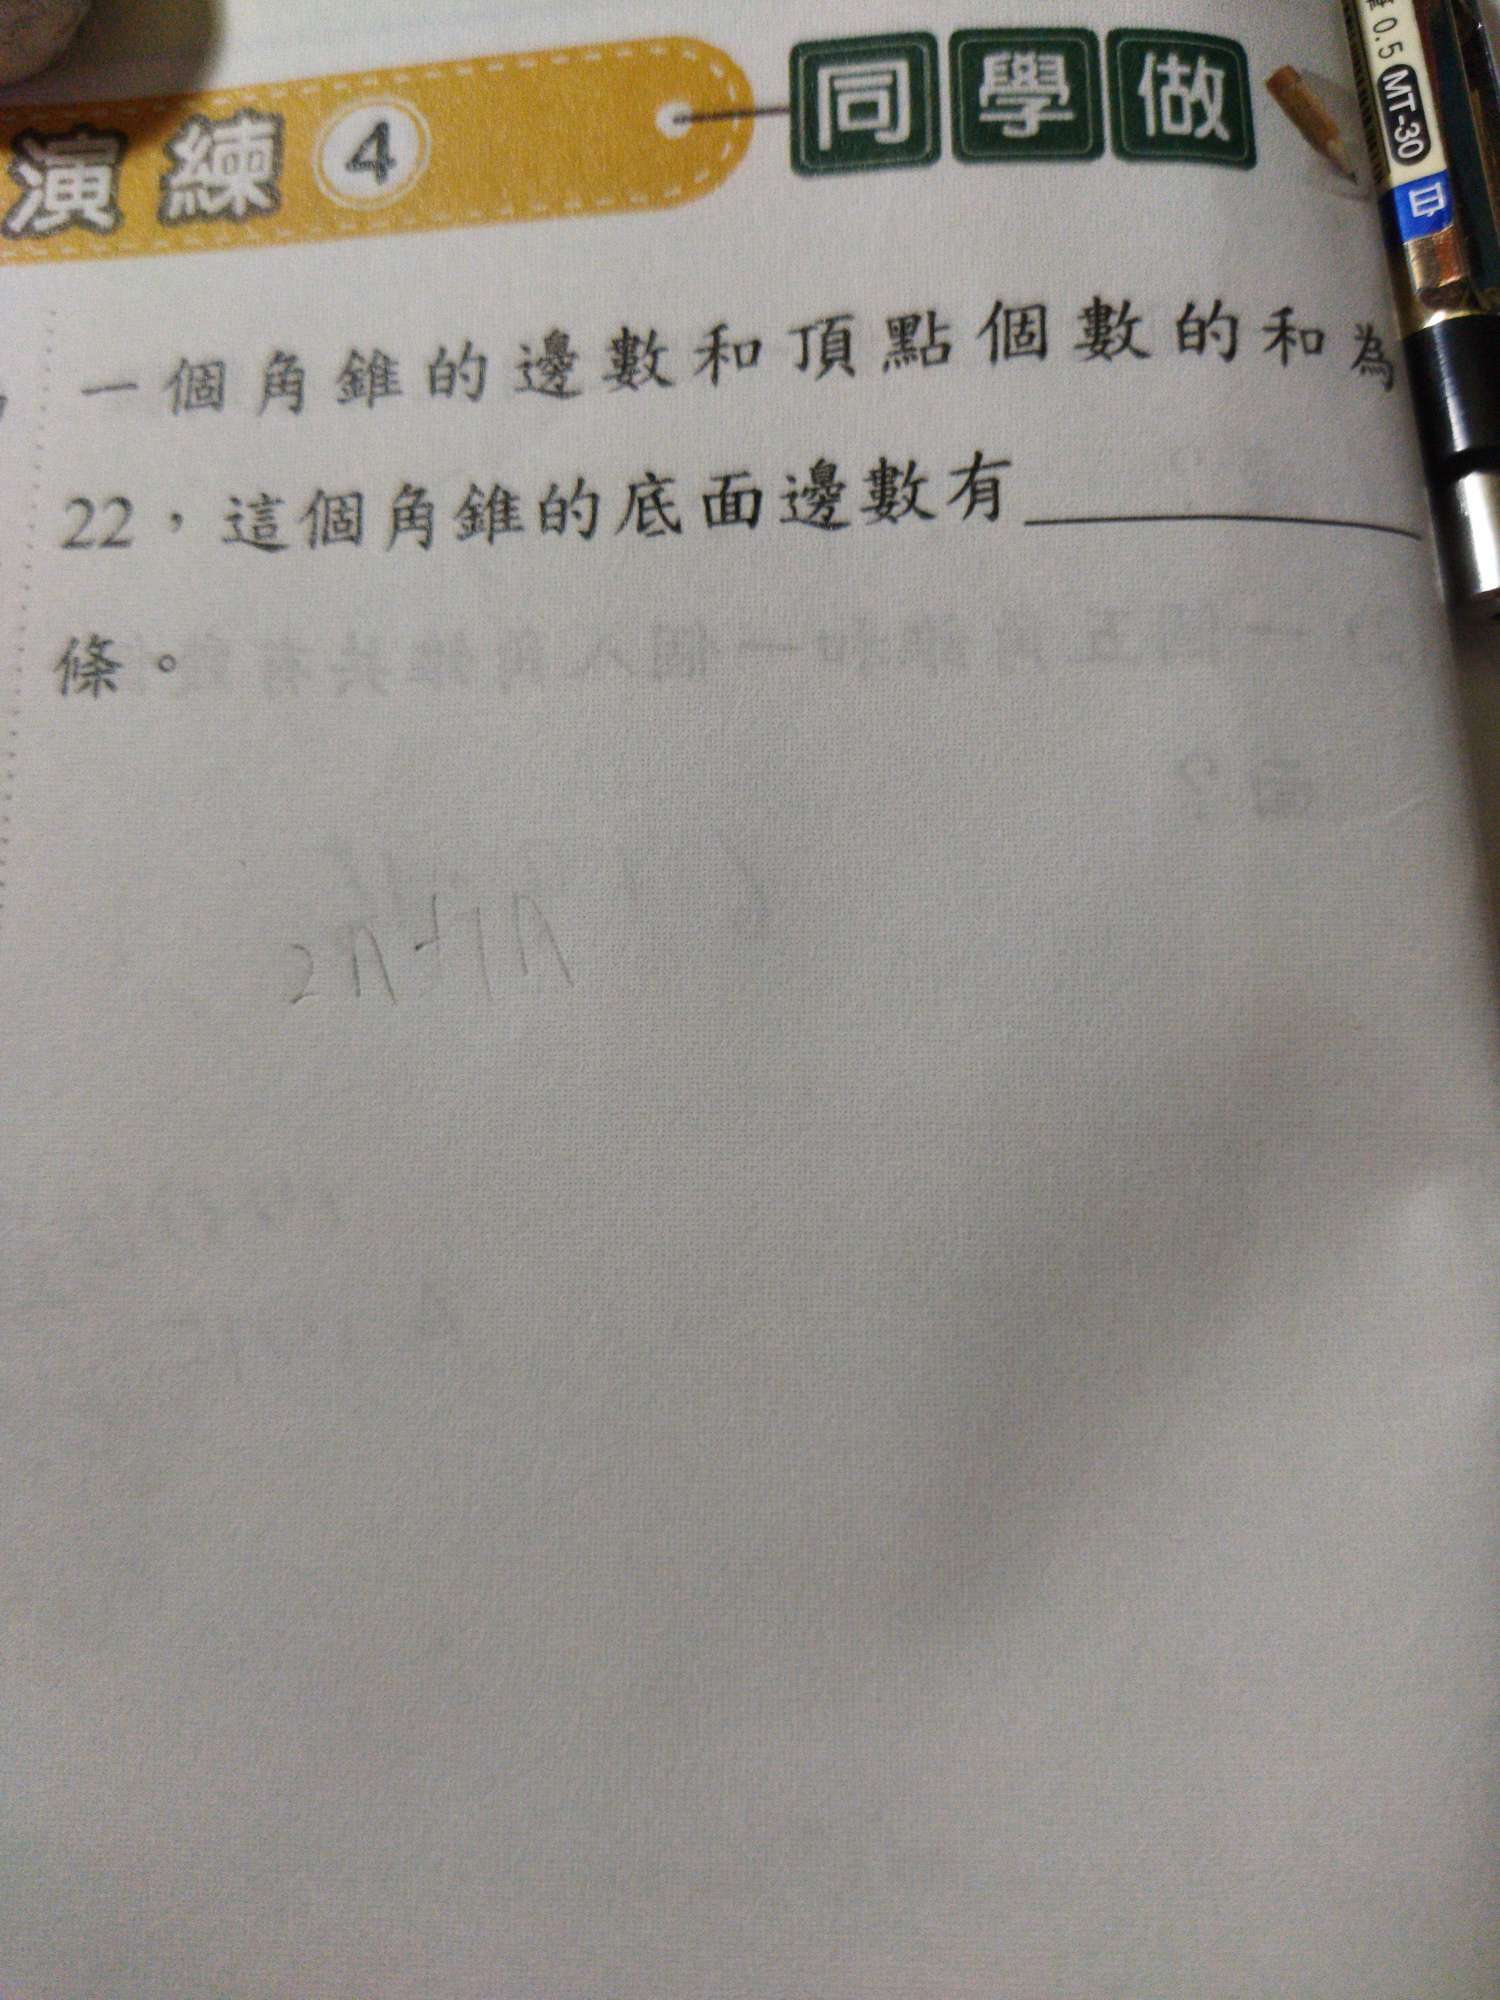 演練4 同學做
一個角錐的邊數和頂點個數的和為
22，這個角錐的底面邊數有
條。
0.5 MT-30